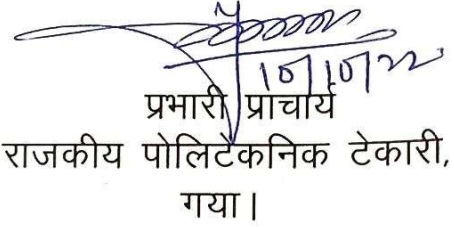 10/10/22
प्रभारी प्राचार्य
राजकीय पोलिटेकनिक टेकारी,
गया।